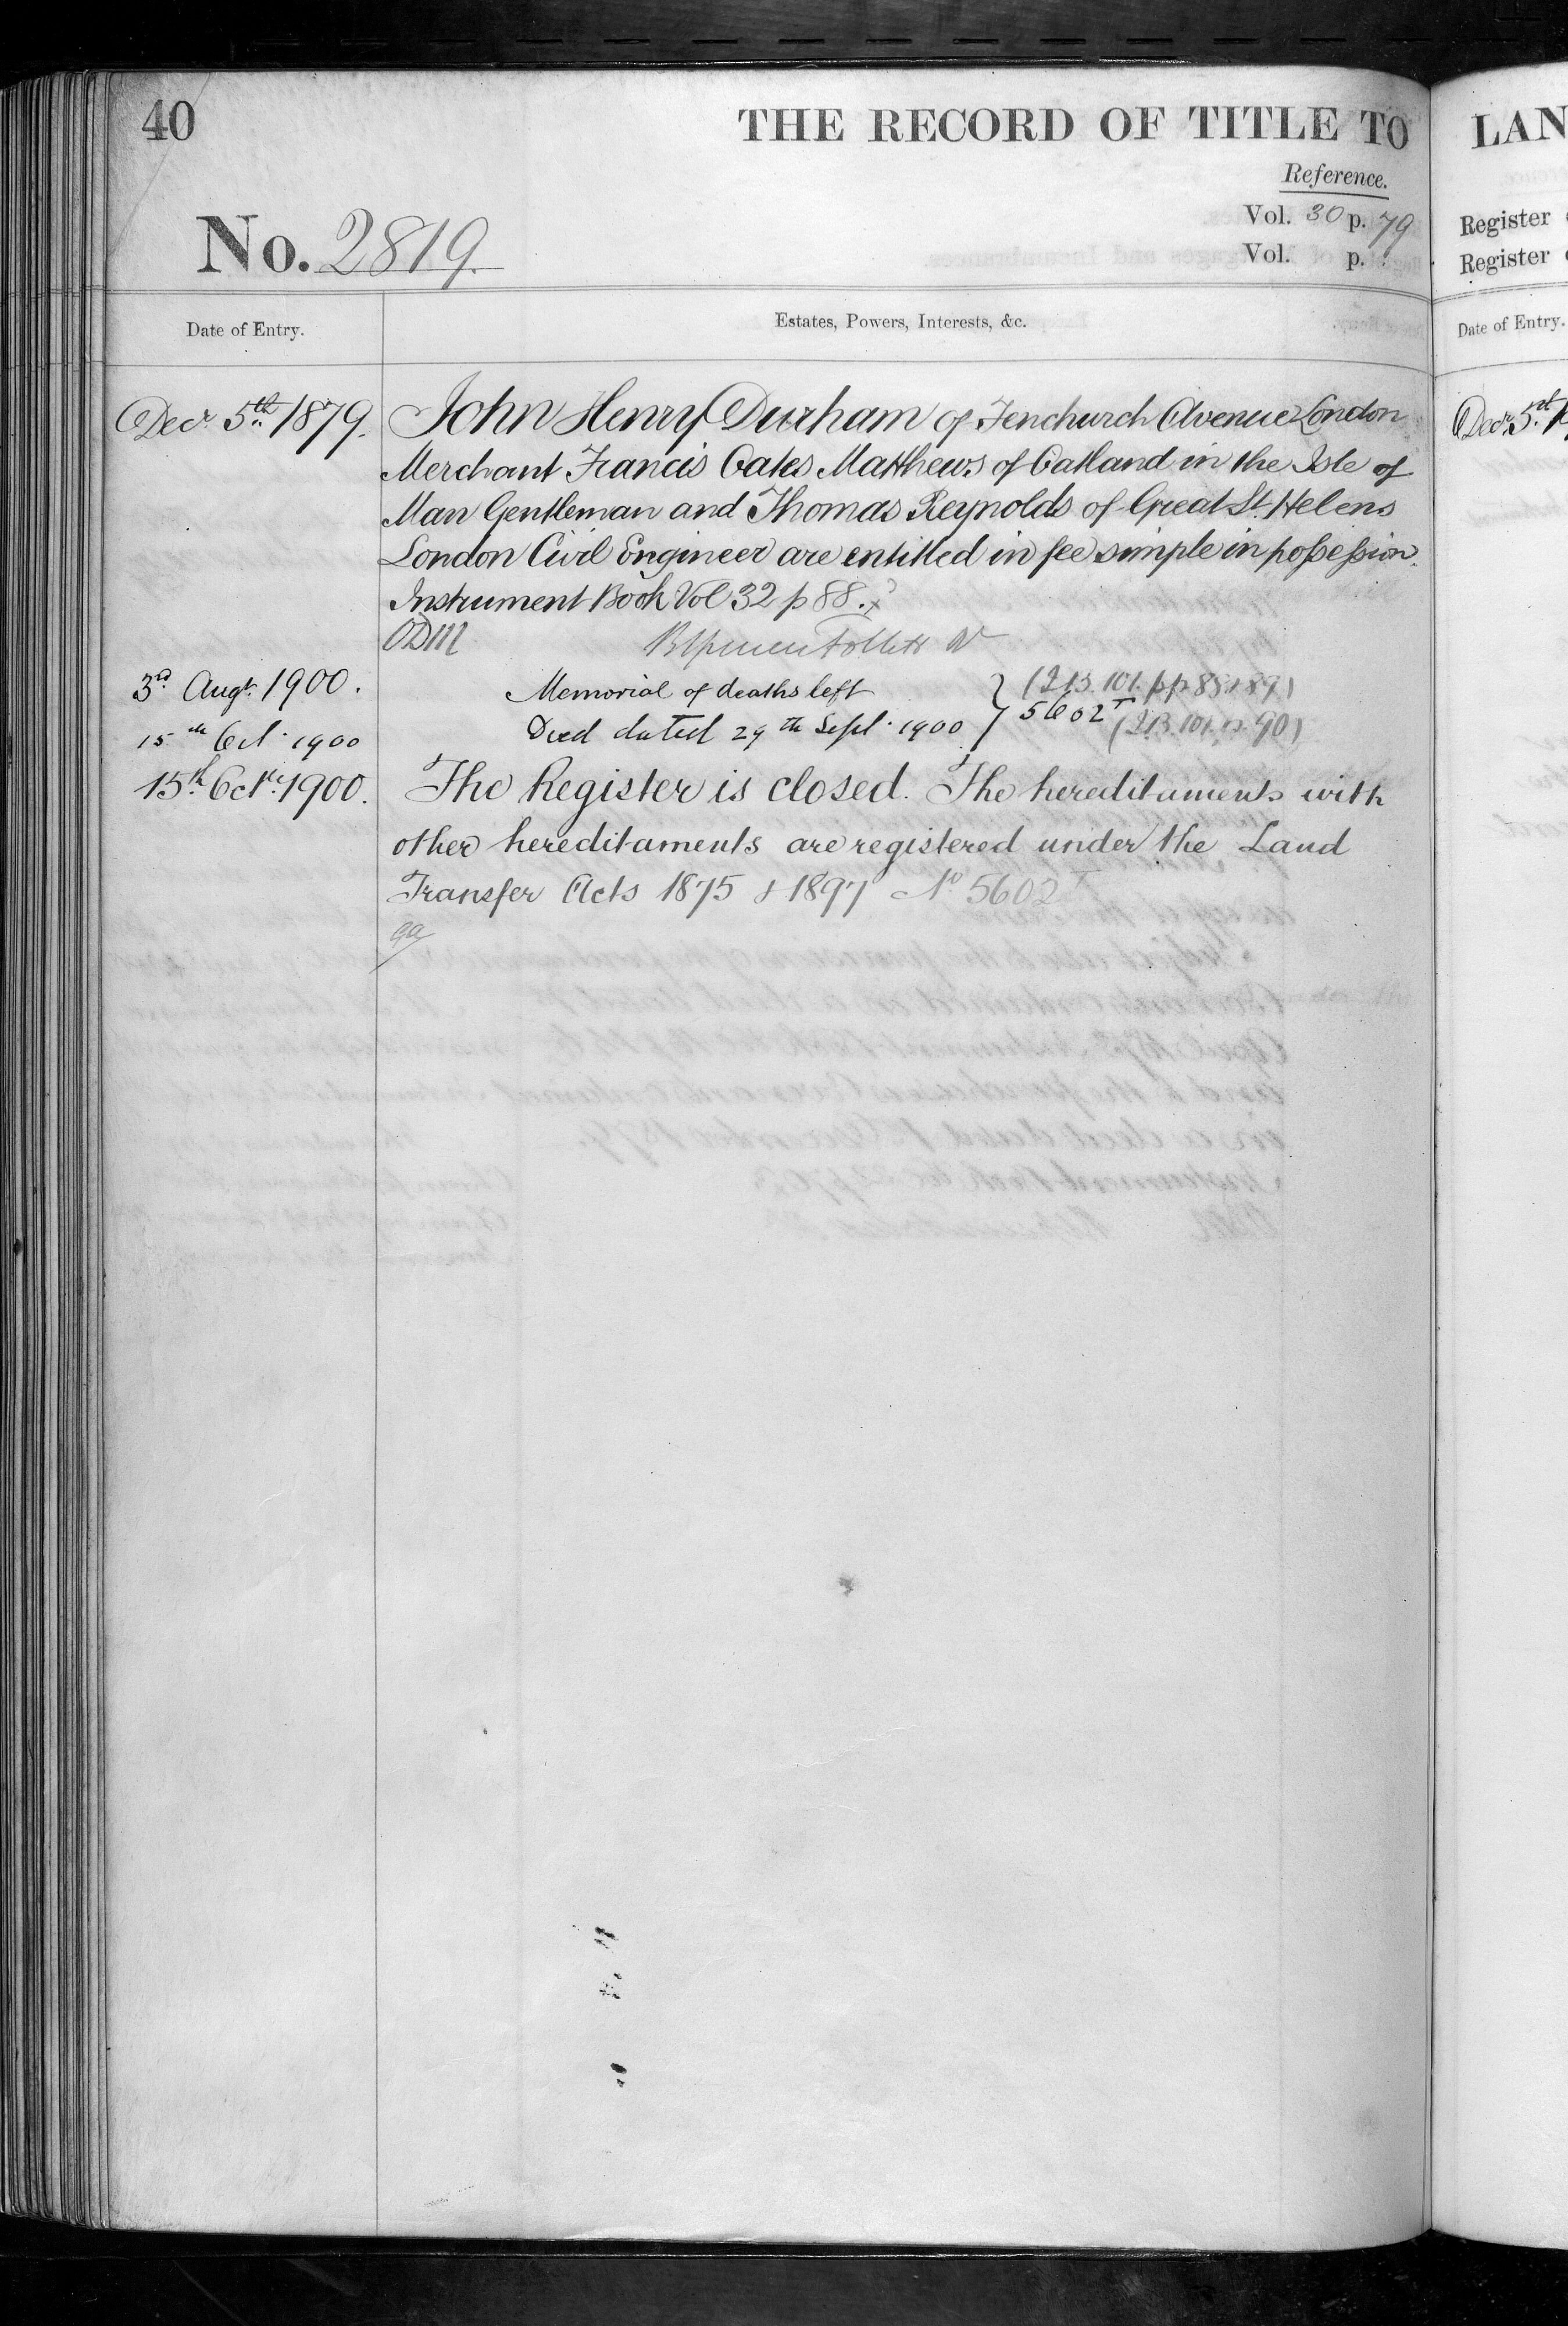 40
THE RECORD OF TITLE TO
Reference.
No. 2819.
Vol. 30 p. 79
Vol. p.
Date of Entry.
Estates, Powers, Interests, &c.
Decr. 5th. 1879.
John Henry Durham of Fenchurch Avenue London
Merchant Francis Oates Matthews of Oatland in the Isle of
Man Gentleman and Thomas Reynolds of Great St. Helens
London Civil Engineer are entitled in fee simple in possession.
Instrument Book Vol 32 p 88.
3rd Augt. 1900.
Memorial of deaths left
pp 88 & 89)
15th Oct. 1900
Deed dated 29th Sept. 1900
5602T
15th Oct. 1900.
The Register is closed. The hereditaments with
other hereditaments are registered under the Land
Transfer Acts 1875 & 1897 No 5602T
LAN
Register
Register
Date of Entry.
Decr. 5th 1